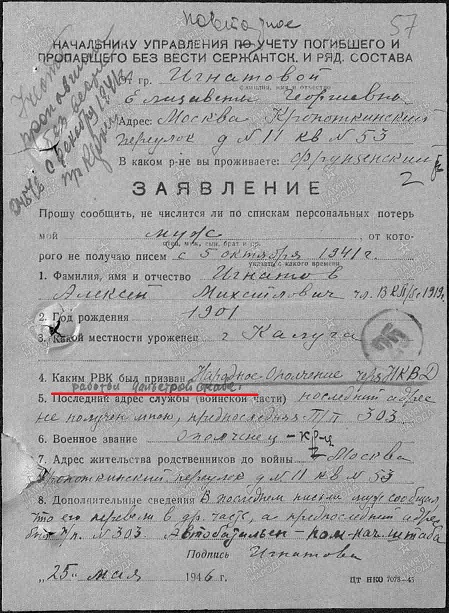 повторное
57
НАЧАЛЬНИКУ УПРАВЛЕНИЯ ПО УЧЕТУ ПОГИБШЕГО И
ПРОПАВШЕГО БЕЗ ВЕСТИ СЕРЖАНТСК. И РЯД. СОСТАВА
гр. Игнатовой
фамилия, имя и отчество
Елизаветы Георгиевны
Адрес: Москва Кропоткинский
переулок д N 11 кв N 53
В каком р-не вы проживаете: Фрунзенский
2
пропавшим
без вести
ЗАЯВЛЕНИЕ
Прошу сообщить, не числится ли по спискам персональных потерь
мой муж, от кото-
отец, муж, сын, брат и др.
рого не получаю писем с 5 октября 1941 г
указать с какого времени
1. Фамилия, имя и отчество Игнатов
Алексей Михайлович чл. ВКП/б с 1919 г.
2. Год рождения 1901
3. Какой местности уроженец г Калуга
4. Каким РВК был призван Народное Ополчение при НКВД
работал
5. Последний адрес службы (воинской части) последний адрес
не получен мною, предпоследняя П/п 303
6. Военное звание ополченец - кр-ц
7. Адрес жительства родственников до войны г Москва
Кропоткинский переулок д N 11 кв N 53
8. Дополнительные сведения В последнем письме муж сообщил
что его перевели в др. часть, а предпоследний адрес
был п/п. N 303. Автобательон - пом. нач. штаба
Подпись Игнатова
"25" мая 1946 г.
ЦТ НКО 7078-45